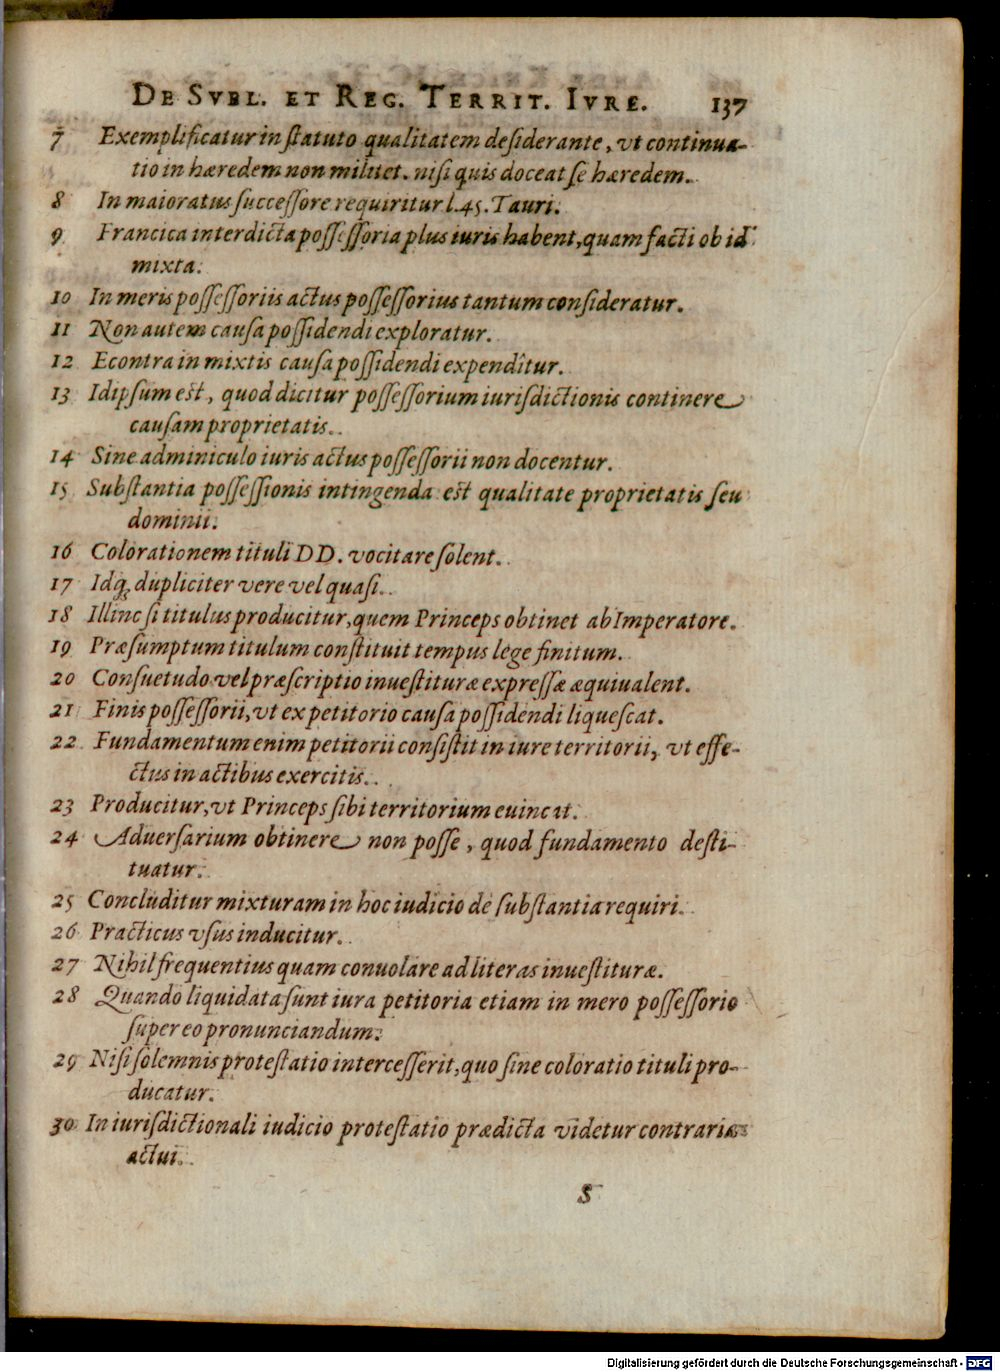 De Svbl. et Reg. Territ. Ivre. 137
7 Exemplificatur in ſtatuto qualitatem deſiderante, vt continua-
tio in hæredem non militet. niſi quis doceat ſe hæredem.
8 In maioratus ſucceſſore requiritur l. 45. Tauri.
9 Francica interdicta poſſeſſoria plus iuris habent, quam facti ob id
mixta.
10 In meris poſſeſſoriis actus poſſeſſorius tantum conſideratur.
11 Non autem cauſa poſſidendi exploratur.
12 Econtra in mixtis cauſa poſſidendi expenditur.
13 Idipſum eſt, quod dicitur poſſeſſorium iuriſdictionis continere
cauſam proprietatis.
14 Sine adminiculo iuris actus poſſeſſorii non docentur.
15 Subſtantia poſſeſſionis intingenda eſt qualitate proprietatis ſeu
dominii.
16 Colorationem tituli DD. vocitare ſolent.
17 Idq; dupliciter vere vel quaſi.
18 Illinc ſi titulus producitur, quem Princeps obtinet ab Imperatore.
19 Præſumptum titulum conſtituit tempus lege finitum.
20 Conſuetudo vel præſcriptio inueſtituræ expreſſæ æquiualent.
21 Finis poſſeſſorii, vt ex petitorio cauſa poſſidendi liqueſcat.
22 Fundamentum enim petitorii conſiſtit in iure territorii, vt effe-
ctus in actibus exercitis.
23 Producitur, vt Princeps ſibi territorium euincat.
24 Aduerſarium obtinere non poſſe, quod fundamento deſti-
tuatur.
25 Concluditur mixturam in hoc iudicio de ſubſtantia requiri.
26 Practicus vſus inducitur.
27 Nihil frequentius quam conuolare ad literas inueſtituræ.
28 Quando liquidata ſunt iura petitoria etiam in mero poſſeſſorio
ſuper eo pronunciandum.
29 Niſi ſolemnis proteſtatio interceſſerit, quo ſine coloratio tituli pro-
ducatur.
30 In iuriſdictionali iudicio proteſtatio prædicta videtur contraria
actui.
S
Digitalisierung gefördert durch die Deutsche Forschungsgemeinschaft - DFG